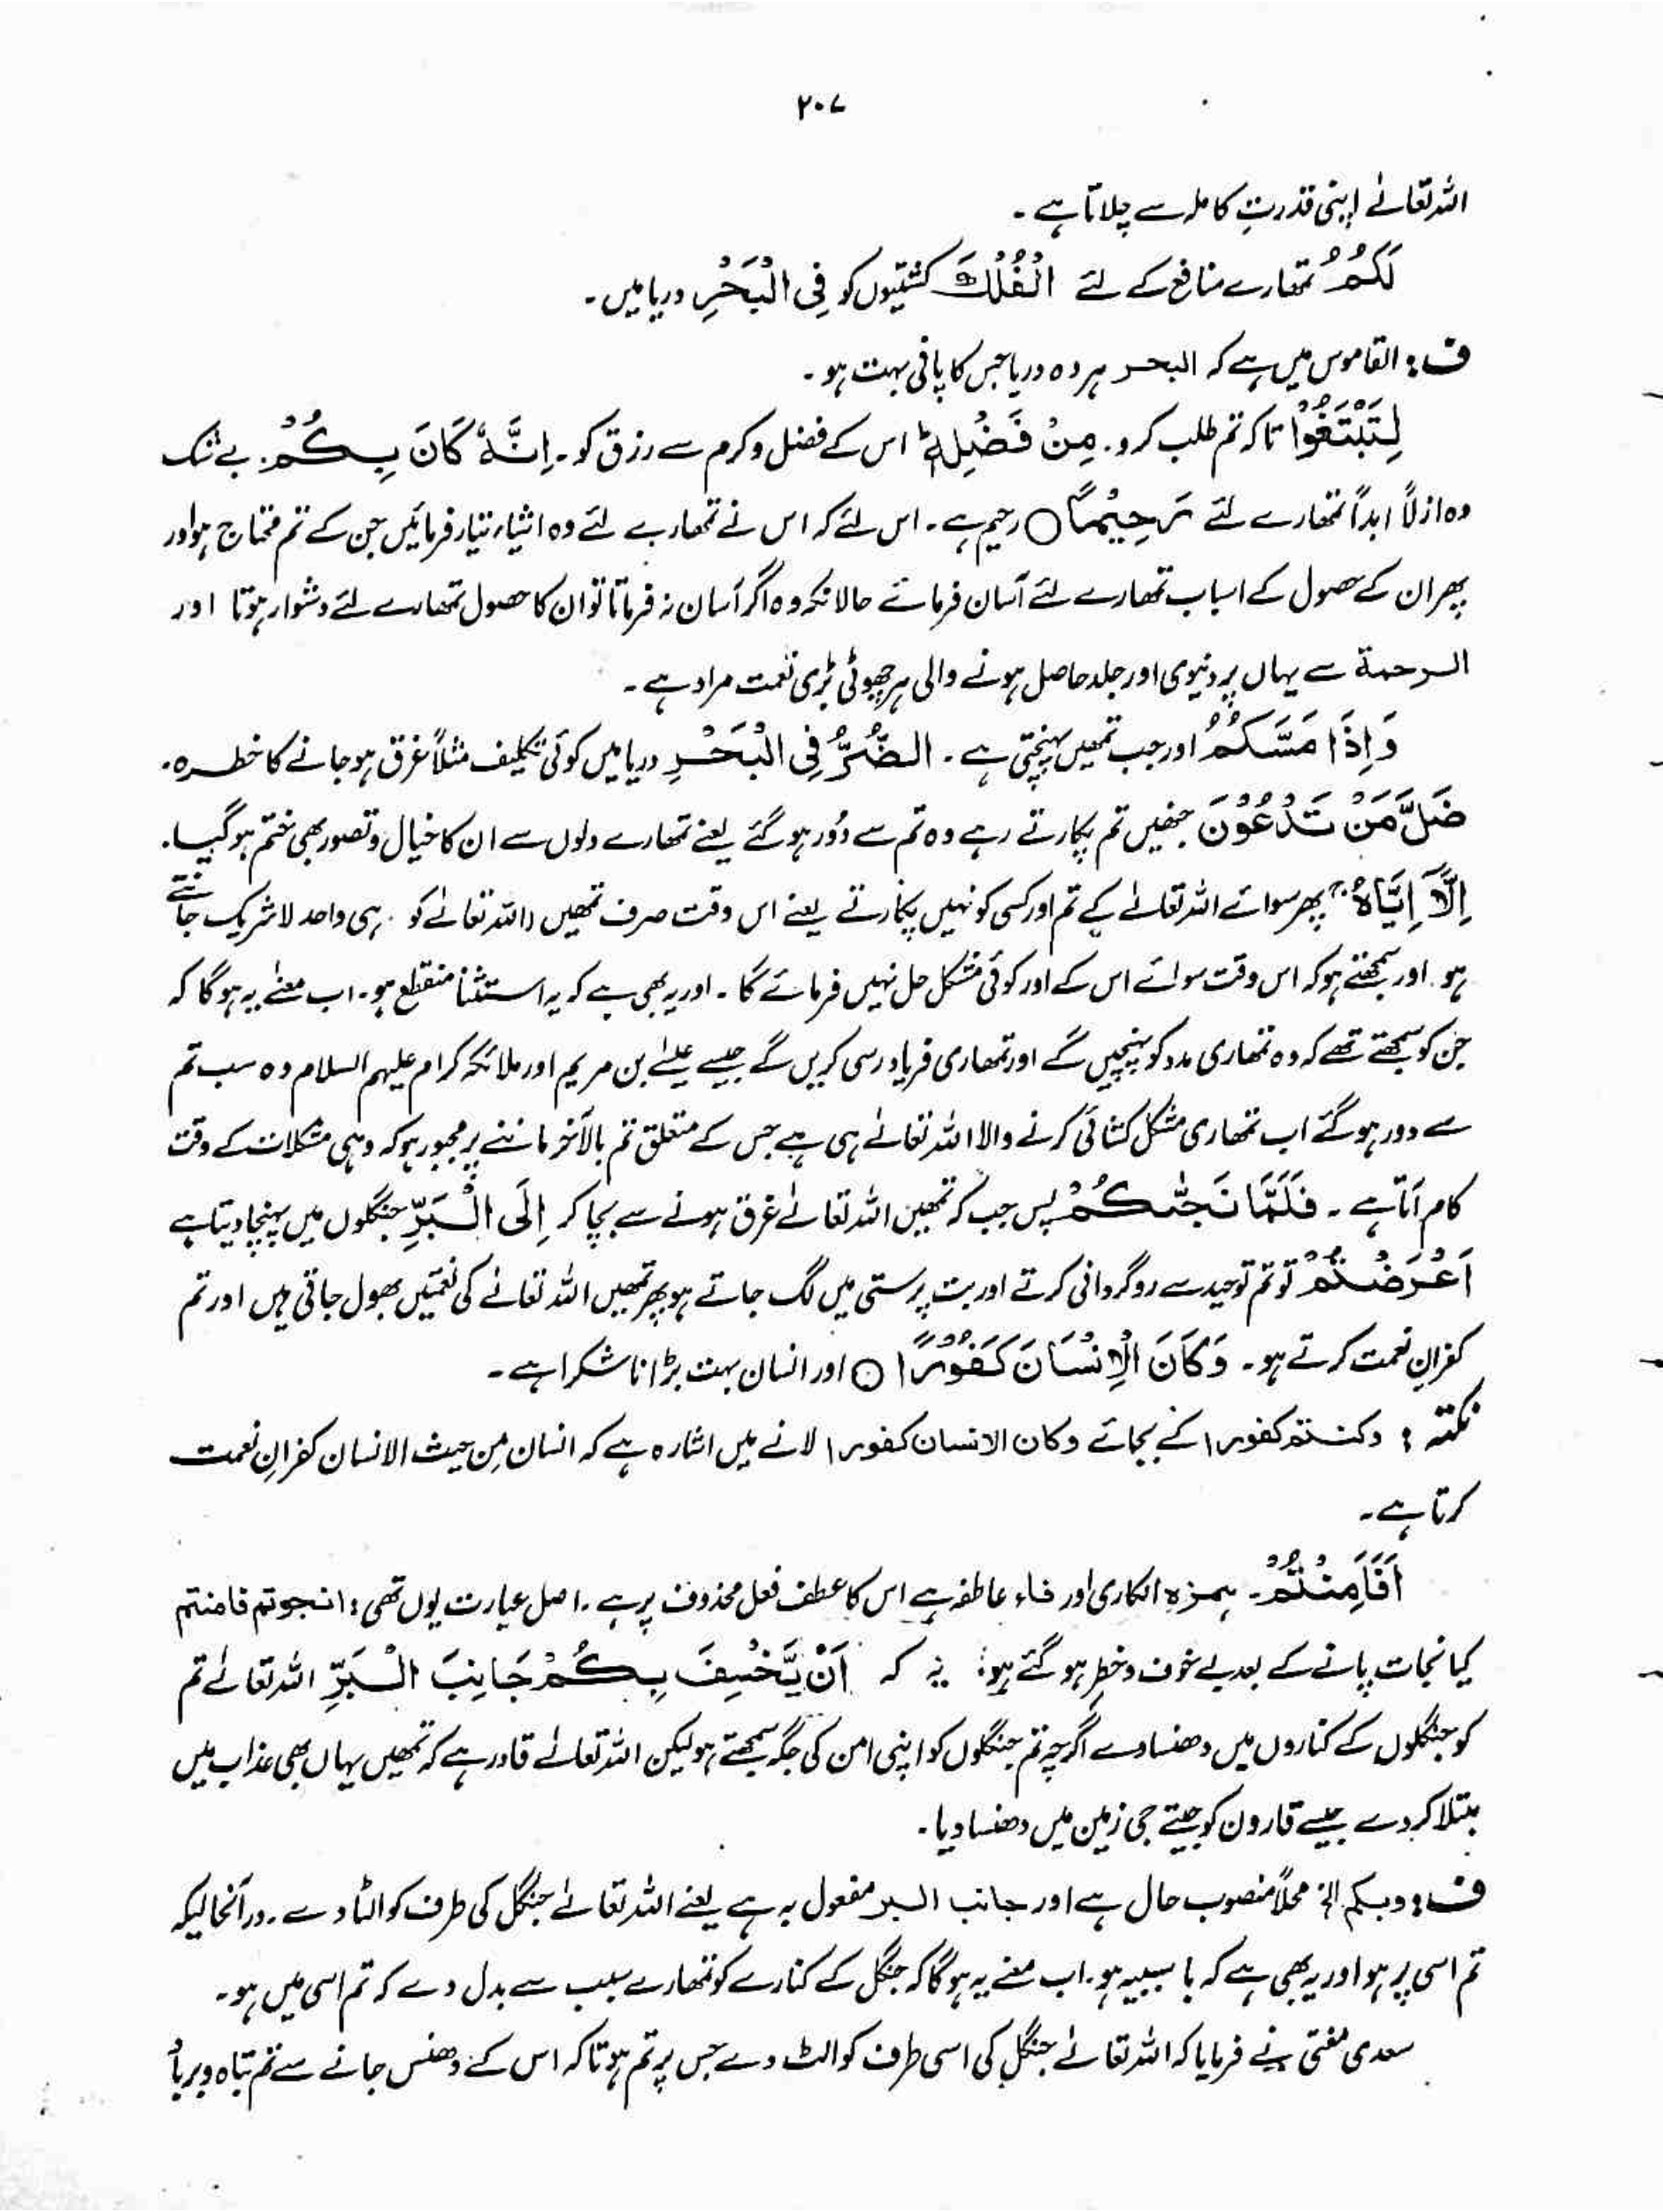 ۲۰۷
اللہ تعالےٰ اپنی قدرتِ کاملہ سے چلاتا ہے۔
لَكُمُ تمھارے منافع کے لئے الْفُلْكَ کشتیوں کو فِی الْبَحْرِ دریا میں۔
ف: القاموس میں ہے کہ البحر ہر وہ دریا جس کا پانی بہت ہو۔
لِتَبْتَغُوْا تاکہ تم طلب کرو۔ مِنْ فَضْلِهٖ ؕ اس کے فضل و کرم سے رزق کو۔ اِنَّهٗ كَانَ بِكُمْ۔ بے شک
وہ ازلاً ابداً تمھارے لئے رَحِيْمًا ○ رحیم ہے۔ اس لئے کہ اس نے تمھارے لئے وہ اشیاء تیار فرمائیں جن کے تم محتاج ہو اور
پھر ان کے حصول کے اسباب تمھارے لئے آسان فرمائے حالانکہ وہ اگر آسان نہ فرماتا تو ان کا حصول تمھارے لئے دشوار ہوتا اور
الرحمة سے یہاں پر دنیوی اور جلد حاصل ہونے والی ہر چھوٹی بڑی نعمت مراد ہے۔
وَ اِذَا مَسَّكُمُ اور جب تمھیں پہنچتی ہے۔ الضُّرُّ فِی الْبَحْرِ دریا میں کوئی تکلیف مثلاً غرق ہو جانے کا خطرہ۔
ضَلَّ مَنْ تَدْعُوْنَ جنھیں تم پکارتے رہے وہ تم سے دُور ہو گئے یعنے تمھارے دلوں سے ان کا خیال و تصور بھی ختم ہو گیا۔
اِلَّاۤ اِيَّاهُ ۚ پھر سوائے اللہ تعالےٰ کے تم اور کسی کو نہیں پکارتے یعنے اس وقت صرف تمھیں (اللہ تعالےٰ کو ہی واحد لا شریک جانتے
ہو۔ اور سمجھتے ہو کہ اس وقت سوائے اس کے اور کوئی مشکل حل نہیں فرمائے گا۔ اور یہ بھی ہے کہ یہ استثنا منقطع ہو۔ اب معنےٰ یہ ہوگا کہ
جن کو سمجھتے تھے کہ وہ تمھاری مدد کو پہنچیں گے اور تمھاری فریاد رسی کریں گے جیسے عیلےٰ بن مریم اور ملائکہ کرام علیہم السلام وہ سب تم
سے دور ہو گئے اب تمھاری مشکل کشائی کرنے والا اللہ تعالےٰ ہی ہے جس کے متعلق تم بالآخر ماننے پر مجبور ہو کہ وہی مشکلات کے وقت
کام آتا ہے۔ فَلَمَّا نَجّٰىكُمْ پس جب کہ تمھیں اللہ تعالےٰ غرق ہونے سے بچا کر اِلَى الْبَرِّ جنگلوں میں پہنچا دیتا ہے
اَعْرَضْتُمْ تو تم توحید سے روگردانی کرتے اور بت پرستی میں لگ جاتے ہو پھر تمھیں اللہ تعالےٰ کی نعمتیں بھول جاتی ہیں اور تم
کفرانِ نعمت کرتے ہو۔ وَ كَانَ الْاِنْسَانَ كَفُوْرًا ○ اور انسان بہت بڑا ناشکرا ہے۔
نکتہ: وکنتم کفورا کے بجائے وکان الانسان کفورا لانے میں اشارہ ہے کہ انسان مِن حیث الانسان کفرانِ نعمت
کرتا ہے۔
اَفَاَمِنْتُمْ۔ ہمزہ انکاری اور فاء عاطفہ ہے اس کا عطف فعل محذوف پر ہے۔ اصل عبارت یوں تھی: انجوتم فامنتم
کیا نجات پانے کے بعد بے خوف و خطر ہو گئے ہو؛ یہ کہ اَنْ يَّخْسِفَ بِكُمْ جَانِبَ الْبَرِّ اللہ تعالےٰ تم
کو جنگلوں کے کناروں میں دھنسا دے اگرچہ تم جنگلوں کو اپنی امن کی جگہ سمجھتے ہو لیکن اللہ تعالےٰ قادر ہے کہ تمھیں یہاں بھی عذاب میں
مبتلا کر دے جیسے قارون کو جیتے جی زمین میں دھنسا دیا۔
ف: وبکم الخ محلاً منصوب حال ہے اور جانب البر مفعول بہ ہے یعنے اللہ تعالےٰ جنگل کی طرف کو الٹا دے۔ درآنحالیکہ
تم اسی پر ہو اور یہ بھی ہے کہ با سببیہ ہو۔ اب معنے یہ ہوگا کہ جنگل کے کنارے کو تمھارے سبب سے بدل دے کہ تم اسی میں ہو۔
سعدی مفتی نے فرمایا کہ اللہ تعالےٰ جنگل کی اسی طرف کو الٹ دے جس پر تم ہو تاکہ اس کے دھنس جانے سے تم تباہ و برباد